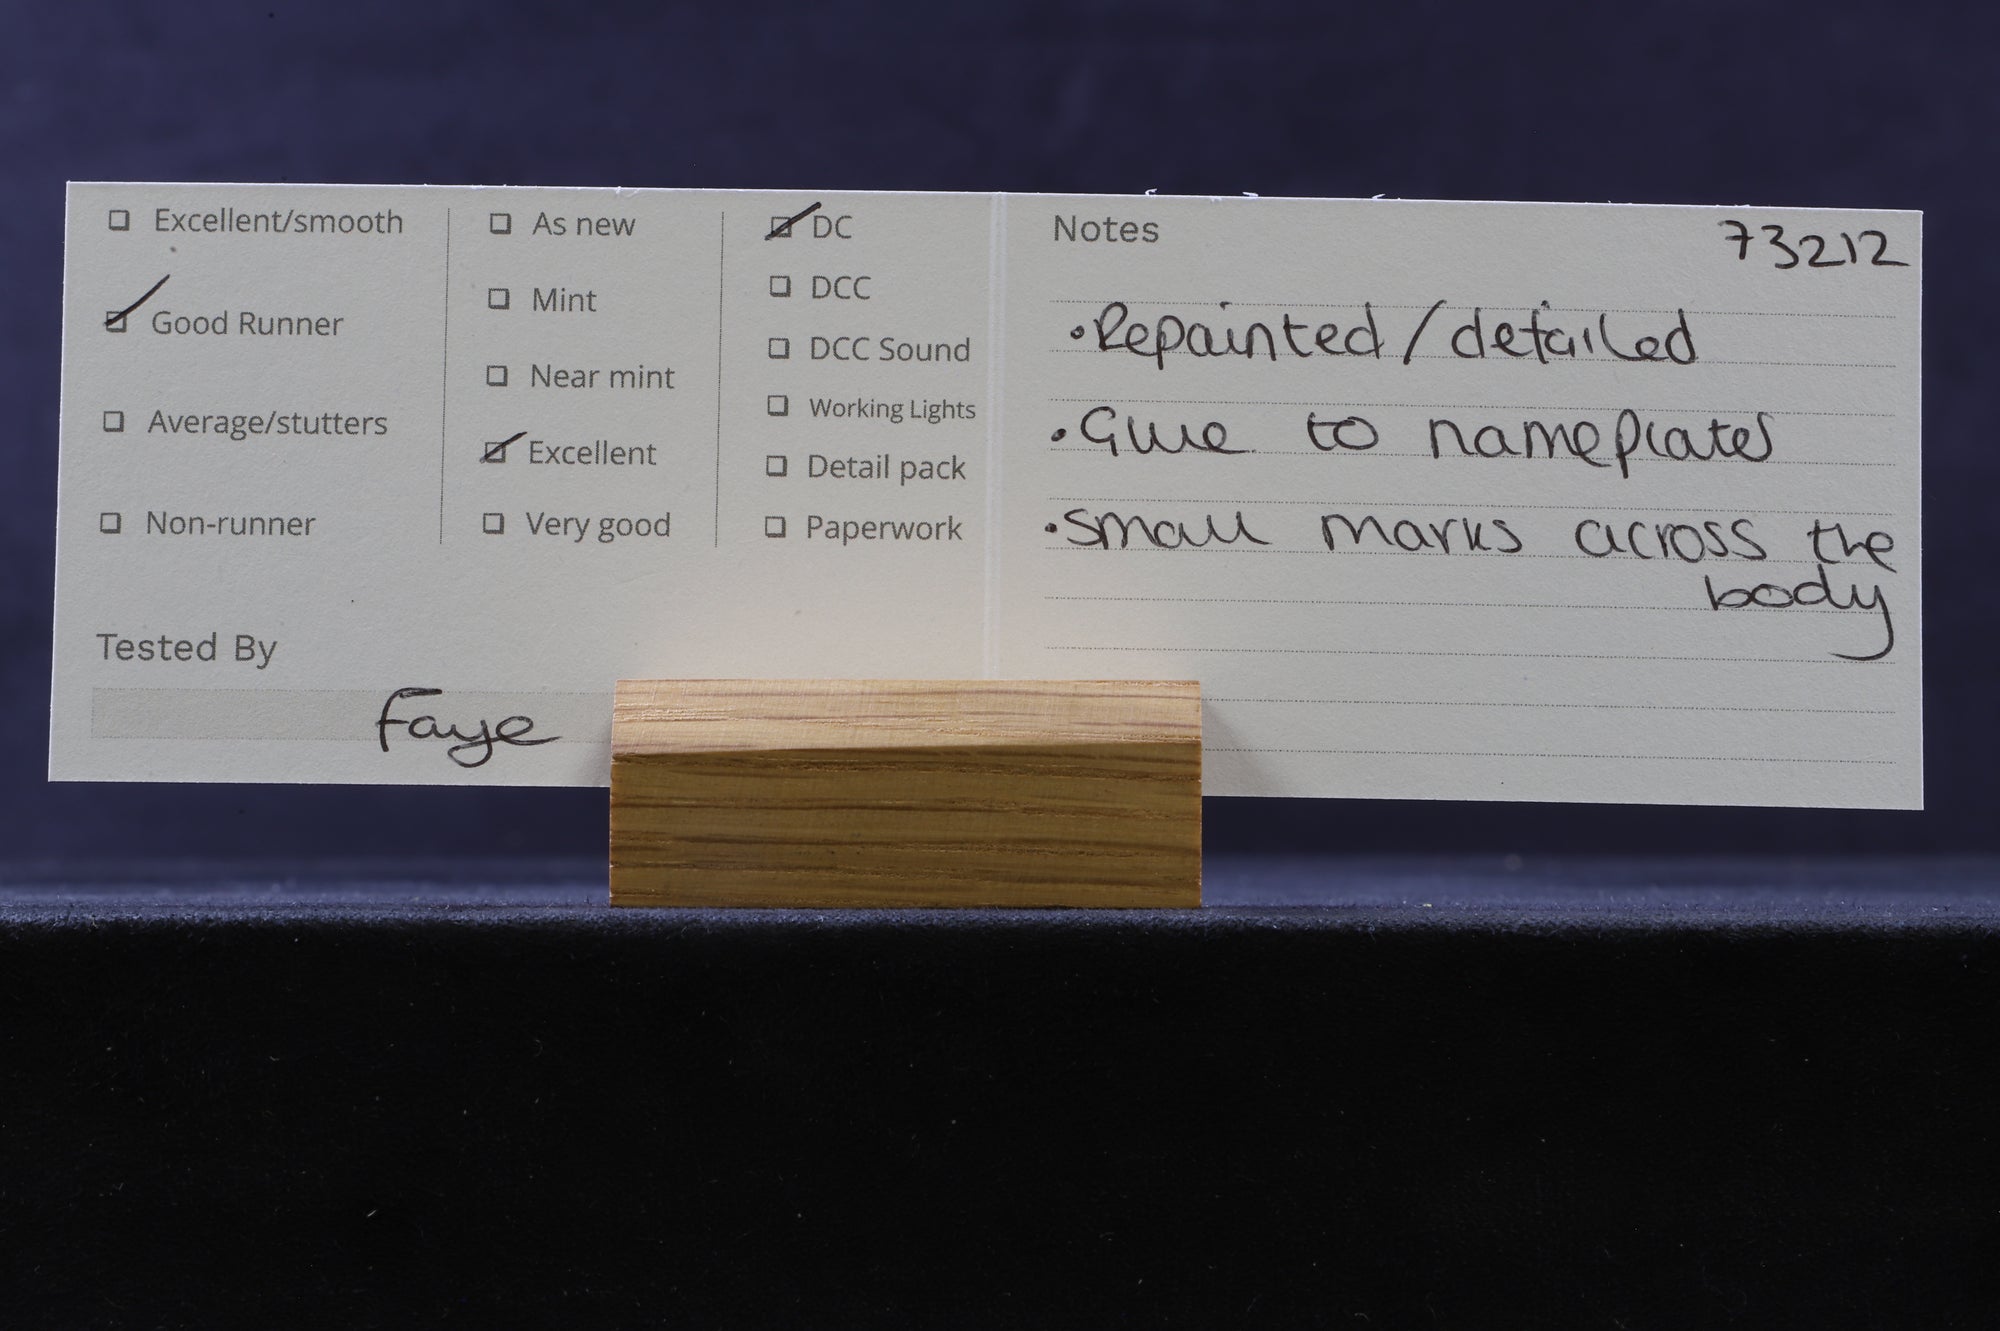 ☐ Excellent/smooth
☑ Good Runner
☐ Average/stutters
☐ Non-runner
☐ As new
☐ Mint
☐ Near mint
☑ Excellent
☐ Very good
☑ DC
☐ DCC
☐ DCC Sound
☐ Working Lights
☐ Detail pack
☐ Paperwork
Tested By
Faye
Notes
73212
•Repainted/detailed
•Glue to nameplates
•small marks across the
body